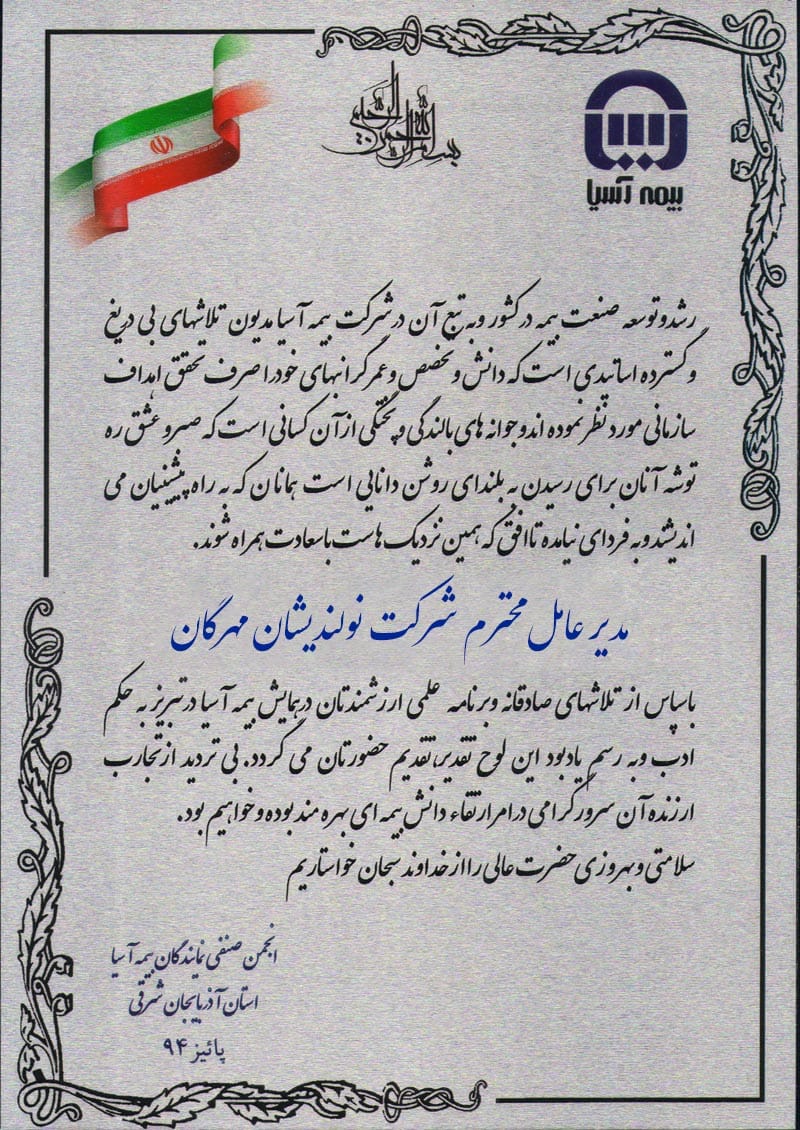 بسم الله الرحمن الرحیم
بیمه آسیا
رشد و توسعه صنعت بیمه در کشور و به تبع آن در شرکت بیمه آسیا مدیون تلاشهای بی دریغ
و گسترده اساتیدی است که دانش و تخصص و عمر گرانبهای خود را صرف تحقق اهداف
سازمانی مورد نظر نموده اند و جوانه های بالندگی و پختگی از آن کسانی است که صبر و عشق ره
توشه آنان برای رسیدن به بلندای روشن دانایی است همانان که به راه پیشینیان می
اندیشند و به فردای نیامده تا افق که همین نزدیک هاست با سعادت همراه شوند.
مدیر عامل محترم شرکت نواندیشان مهرگان
با سپاس از تلاشهای صادقانه و برنامه علمی ارزشمندتان در همایش بیمه آسیا در تبریز به حکم
ادب و به رسم یادبود این لوح تقدیر، تقدیم حضورتان می گردد. بی تردید از تجارب
ارزنده آن سرور گرامی در امر ارتقاء دانش بیمه ای بهره مند بوده و خواهیم بود.
سلامتی و بهروزی حضرت عالی را از خداوند سبحان خواستاریم
انجمن صنفی نمایندگان بیمه آسیا
استان آذربایجان شرقی
پائیز ۹۴